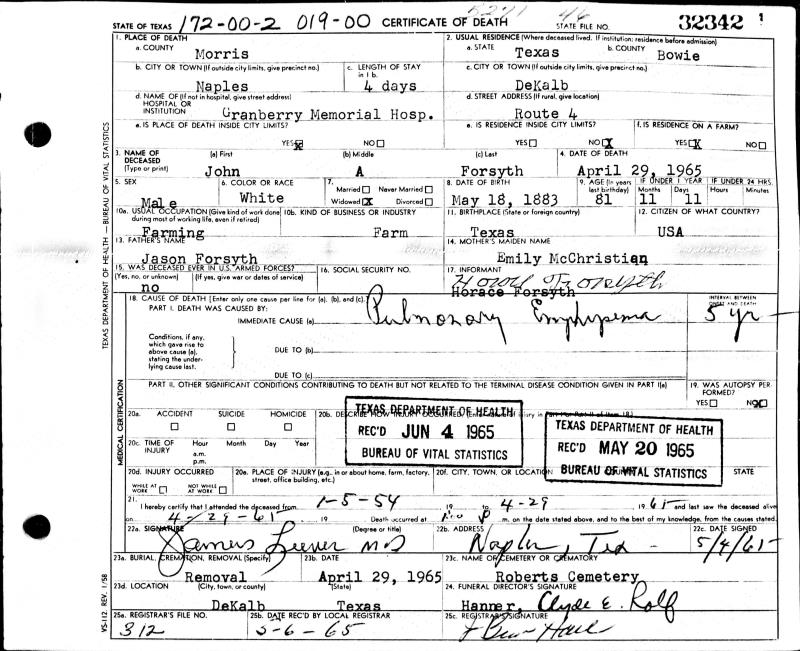 5271 46
STATE OF TEXAS 172-00-2 019-00 CERTIFICATE OF DEATH STATE FILE NO. 32342 1
1. PLACE OF DEATH 2. USUAL RESIDENCE (Where deceased lived. If institution: residence before admission)
a. COUNTY Morris a. STATE Texas b. COUNTY Bowie
b. CITY OR TOWN (If outside city limits, give precinct no.) Naples c. LENGTH OF STAY in 1 b. 4 days c. CITY OR TOWN (If outside city limits, give precinct no.) DeKalb
d. NAME OF (If not in hospital, give street address) HOSPITAL OR INSTITUTION Granberry Memorial Hosp. d. STREET ADDRESS (If rural, give location) Route 4
e. IS PLACE OF DEATH INSIDE CITY LIMITS? YES X NO e. IS RESIDENCE INSIDE CITY LIMITS? YES NO X f. IS RESIDENCE ON A FARM? YES X NO
3. NAME OF DECEASED (Type or print) (a) First John (b) Middle A (c) Last Forsyth 4. DATE OF DEATH April 29, 1965
5. SEX Male 6. COLOR OR RACE White 7. Married Never Married Widowed X Divorced 8. DATE OF BIRTH May 18, 1883 9. AGE (In years last birthday) 81 IF UNDER 1 YEAR Months 11 Days 11 IF UNDER 24 HRS. Hours Minutes
10a. USUAL OCCUPATION (Give kind of work done during most of working life, even if retired) Farming 10b. KIND OF BUSINESS OR INDUSTRY Farm 11. BIRTHPLACE (State or foreign country) Texas 12. CITIZEN OF WHAT COUNTRY? USA
13. FATHER'S NAME Jason Forsyth 14. MOTHER'S MAIDEN NAME Emily McChristian
15. WAS DECEASED EVER IN U.S. ARMED FORCES? (Yes, no, or unknown) no (If yes, give war or dates of service) 16. SOCIAL SECURITY NO. 17. INFORMANT Horace Forsyth
Horace Forsyth
18. CAUSE OF DEATH [Enter only one cause per line for (a), (b), and (c).] INTERVAL BETWEEN ONSET AND DEATH
PART I. DEATH WAS CAUSED BY:
IMMEDIATE CAUSE (a) Pulmonary Emphysema 5 yr
Conditions, if any, which gave rise to above cause (a), stating the underlying cause last. DUE TO (b)
DUE TO (c)
PART II. OTHER SIGNIFICANT CONDITIONS CONTRIBUTING TO DEATH BUT NOT RELATED TO THE TERMINAL DISEASE CONDITION GIVEN IN PART I(a) 19. WAS AUTOPSY PERFORMED? YES NO X
20a. ACCIDENT SUICIDE HOMICIDE 20b. DESCRIBE HOW INJURY OCCURRED
TEXAS DEPARTMENT OF HEALTH
REC'D JUN 4 1965
BUREAU OF VITAL STATISTICS
TEXAS DEPARTMENT OF HEALTH
REC'D MAY 20 1965
BUREAU OF VITAL STATISTICS
20c. TIME OF INJURY Hour a.m. p.m. Month Day Year
20d. INJURY OCCURRED WHILE AT WORK NOT WHILE AT WORK 20e. PLACE OF INJURY (e.g., in or about home, farm, factory, street, office building, etc.) 20f. CITY, TOWN, OR LOCATION STATE
21. I hereby certify that I attended the deceased from 1-5-54 19 to 4-29 1965 and last saw the deceased alive
on 4-29-65 19 Death occurred at P m. on the date stated above, and to the best of my knowledge, from the causes stated.
22a. SIGNATURE (Degree or title) MD 22b. ADDRESS Naples, Tex 22c. DATE SIGNED 5/4/65
23a. BURIAL, CREMATION, REMOVAL (Specify) Removal 23b. DATE April 29, 1965 23c. NAME OF CEMETERY OR CREMATORY Roberts Cemetery
23d. LOCATION (City, town, or county) DeKalb (State) Texas 24. FUNERAL DIRECTOR'S SIGNATURE Hanner, Clyde E. Rolf
25a. REGISTRAR'S FILE NO. 312 25b. DATE REC'D BY LOCAL REGISTRAR 5-6-65 25c. REGISTRAR'S SIGNATURE
TEXAS DEPARTMENT OF HEALTH — BUREAU OF VITAL STATISTICS
MEDICAL CERTIFICATION
VS-112 REV. 1/58